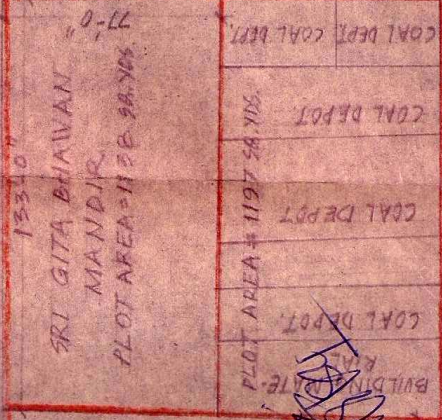 77'-0"
133'-0"
SRI GITA BHAWAN
MANDIR
PLOT AREA = 1138 SQ.YDS
PLOT AREA = 1197 SQ.YDS.
COAL DEPT.
COAL DEPT.
COAL DEPOT.
COAL DEPOT
COAL DEPOT.
BUILDING MATE-
RIAL